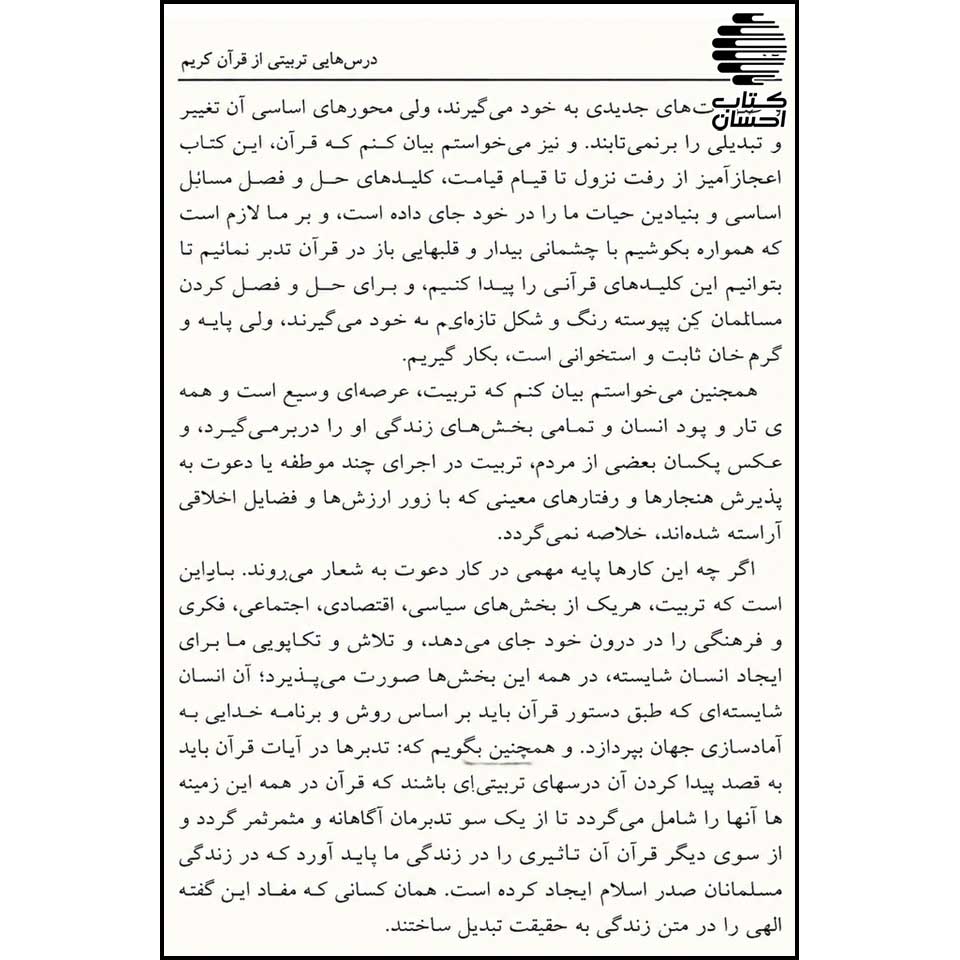 کتاب
احسان
درس‌هایی تربیتی از قرآن کریم
ت‌های جدیدی به خود می‌گیرند، ولی محورهای اساسی آن تغییر
و تبدیلی را برنمی‌تابند. و نیز می‌خواستم بیان کنم که قرآن، این کتاب
اعجازآمیز از رفت نزول تا قیام قیامت، کلیدهای حل و فصل مسائل
اساسی و بنیادین حیات ما را در خود جای داده است، و بر ما لازم است
که همواره بکوشیم با چشمانی بیدار و قلبهایی باز در قرآن تدبر نمائیم تا
بتوانیم این کلیدهای قرآنی را پیدا کنیم، و برای حل و فصل کردن
پیوسته رنگ و شکل تازه‌ای به خود می‌گیرند، ولی پایه و
گرم خان ثابت و استخوانی است، بکار گیریم.
همچنین می‌خواستم بیان کنم که تربیت، عرصه‌ای وسیع است و همه
ی تار و پود انسان و تمامی بخش‌های زندگی او را دربرمی‌گیرد، و
عکس پکسان بعضی از مردم، تربیت در اجرای چند موطفه یا دعوت به
پذیرش هنجارها و رفتارهای معینی که با زور ارزش‌ها و فضایل اخلاقی
آراسته شده‌اند، خلاصه نمی‌گردد.
اگر چه این کارها پایه مهمی در کار دعوت به شعار می‌روند.
است که تربیت، هریک از بخش‌های سیاسی، اقتصادی، اجتماعی، فکری
و فرهنگی را در درون خود جای می‌دهد، و تلاش و تکاپویی ما برای
ایجاد انسان شایسته، در همه این بخش‌ها صورت می‌پذیرد؛ آن انسان
شایسته‌ای که طبق دستور قرآن باید بر اساس روش و برنامه خدایی به
آمادسازی جهان بپردازد. و همچنین بگویم که: تدبرها در آیات قرآن باید
به قصد پیدا کردن آن درسهای تربیتی‌ای باشند که قرآن در همه این زمینه
ها آنها را شامل می‌گردد تا از یک سو تدبرمان آگاهانه و مثمرثمر گردد و
از سوی دیگر قرآن آن تاثیری را در زندگی ما پاید آورد که در زندگی
مسلمانان صدر اسلام ایجاد کرده است. همان کسانی که مفاد این گفته
الهی را در متن زندگی به حقیقت تبدیل ساختند.